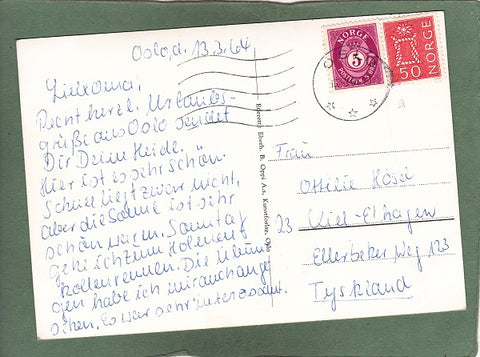 Oslo, d. 13.3.64
Liebe Oma!
Recht herzl. Urlaubs-
grüße aus Oslo sendet
Dir Deine Heide.
Hier ist es sehr schön.
Schnee liegt zwar nicht,
aber die Sonne ist sehr
schön warm. Sonntag
gehe ich zum Holmen-
kollenrennen. Die Übun-
gen habe ich mir angese-
hen. Es war sehr interessant.
Eneret: Eberh. B. Oppi A.s, Kunstforlag, Oslo
NORGE
5
NORGE
50
Frau
Ottilie Hösel
23 Kiel-Elhagen
Ellerbeker Weg 123
Tyskland